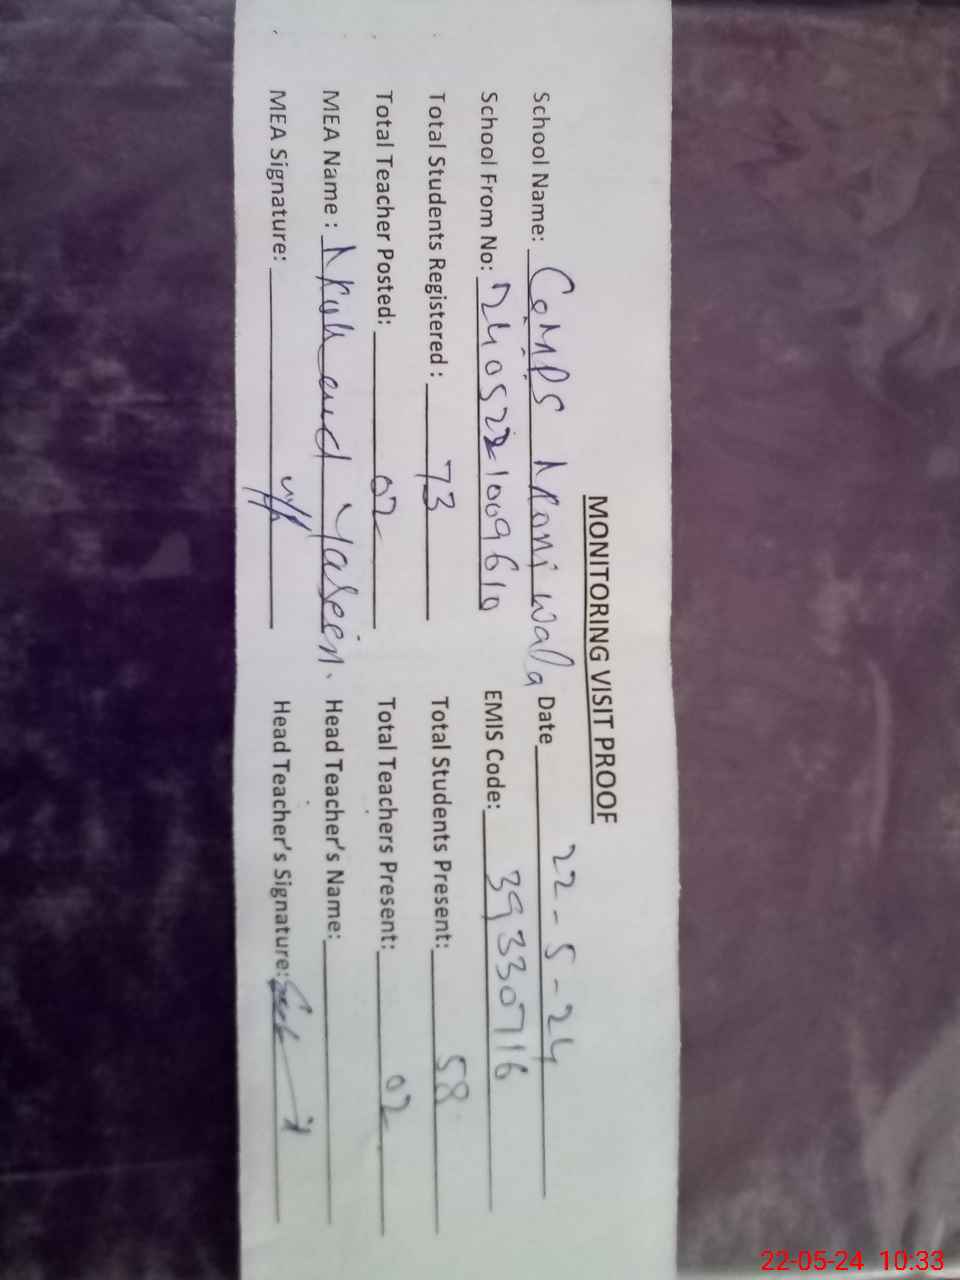 MONITORING VISIT PROOF
School Name: GMPS wala Date 22-5-24
School From No: EMIS Code: 39330716
Total Students Registered : 73 Total Students Present: 58
Total Teacher Posted: 02 Total Teachers Present: 02
MEA Name : Yaseen. Head Teacher's Name:
MEA Signature: Head Teacher's Signature:
22-05-24 10:33